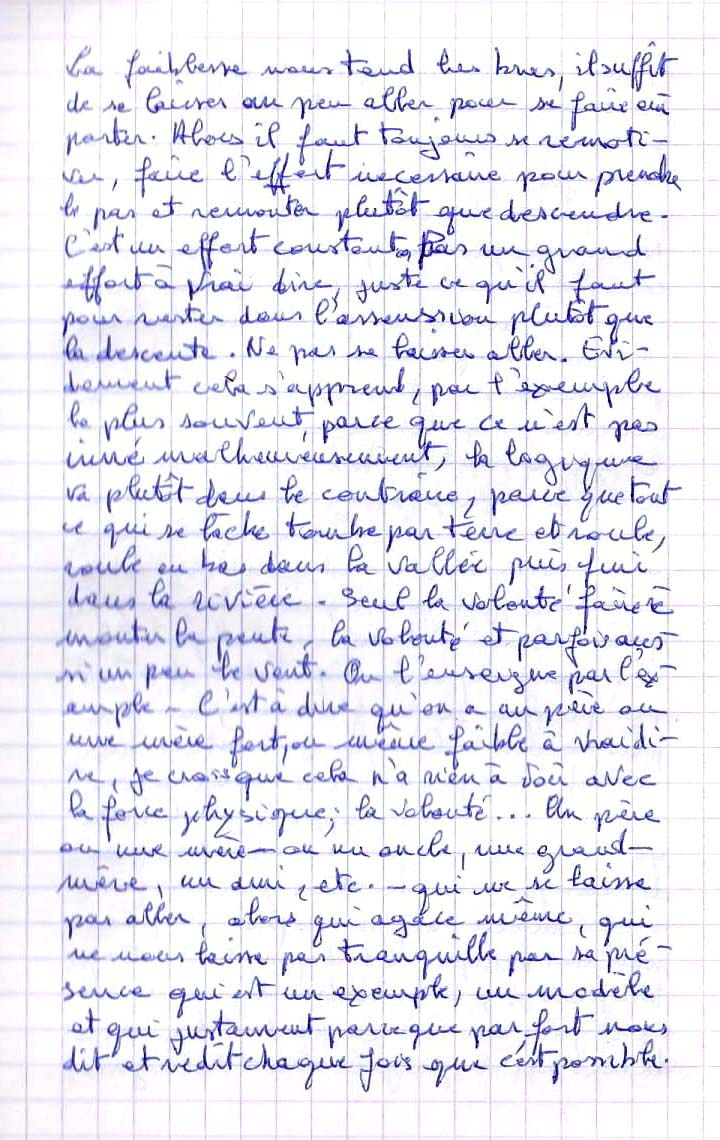 La faiblesse nous tend les bras, il suffit
de se laisser un peu aller pour se faire em
porter. Alors il faut toujours se remoti-
ver, faire l'effort nécessaire pour prendre
le pas et remonter plutôt que descendre.
C'est un effort constant, pas un grand
effort à vrai dire, juste ce qu'il faut
pour rester dans l'assenssion plutôt que
la descente. Ne pas se laisser aller. Evi-
demment cela s'apprend, par l'exemple
le plus souvent, parce que ce n'est pas
inné malheureusement, la logique
va plutôt dans le contraire, parce que tout
ce qui se lâche tombe par terre et roule,
roule en bas dans la vallée puis fini
dans la rivière. Seul la volonté fait re
monter la pente, la volonté et parfois aus-
si un peu le vent. On l'enseigne par l'ex-
emple - C'est à dire qu'on a un père ou
une mère fort, ou même faible à vrai di-
re, je crois que cela n'a rien à voir avec
la force physique; la volonté... Un père
ou une mère - ou un oncle, une grand-
mère, un ami, etc. - qui ne se laisse
pas aller, alors qui agace même, qui
ne nous laisse pas tranquille par sa pré-
sence qui est un exemple, un modèle
et qui justement parce que pas fort nous
dit et redit chaque fois que c'est possible.